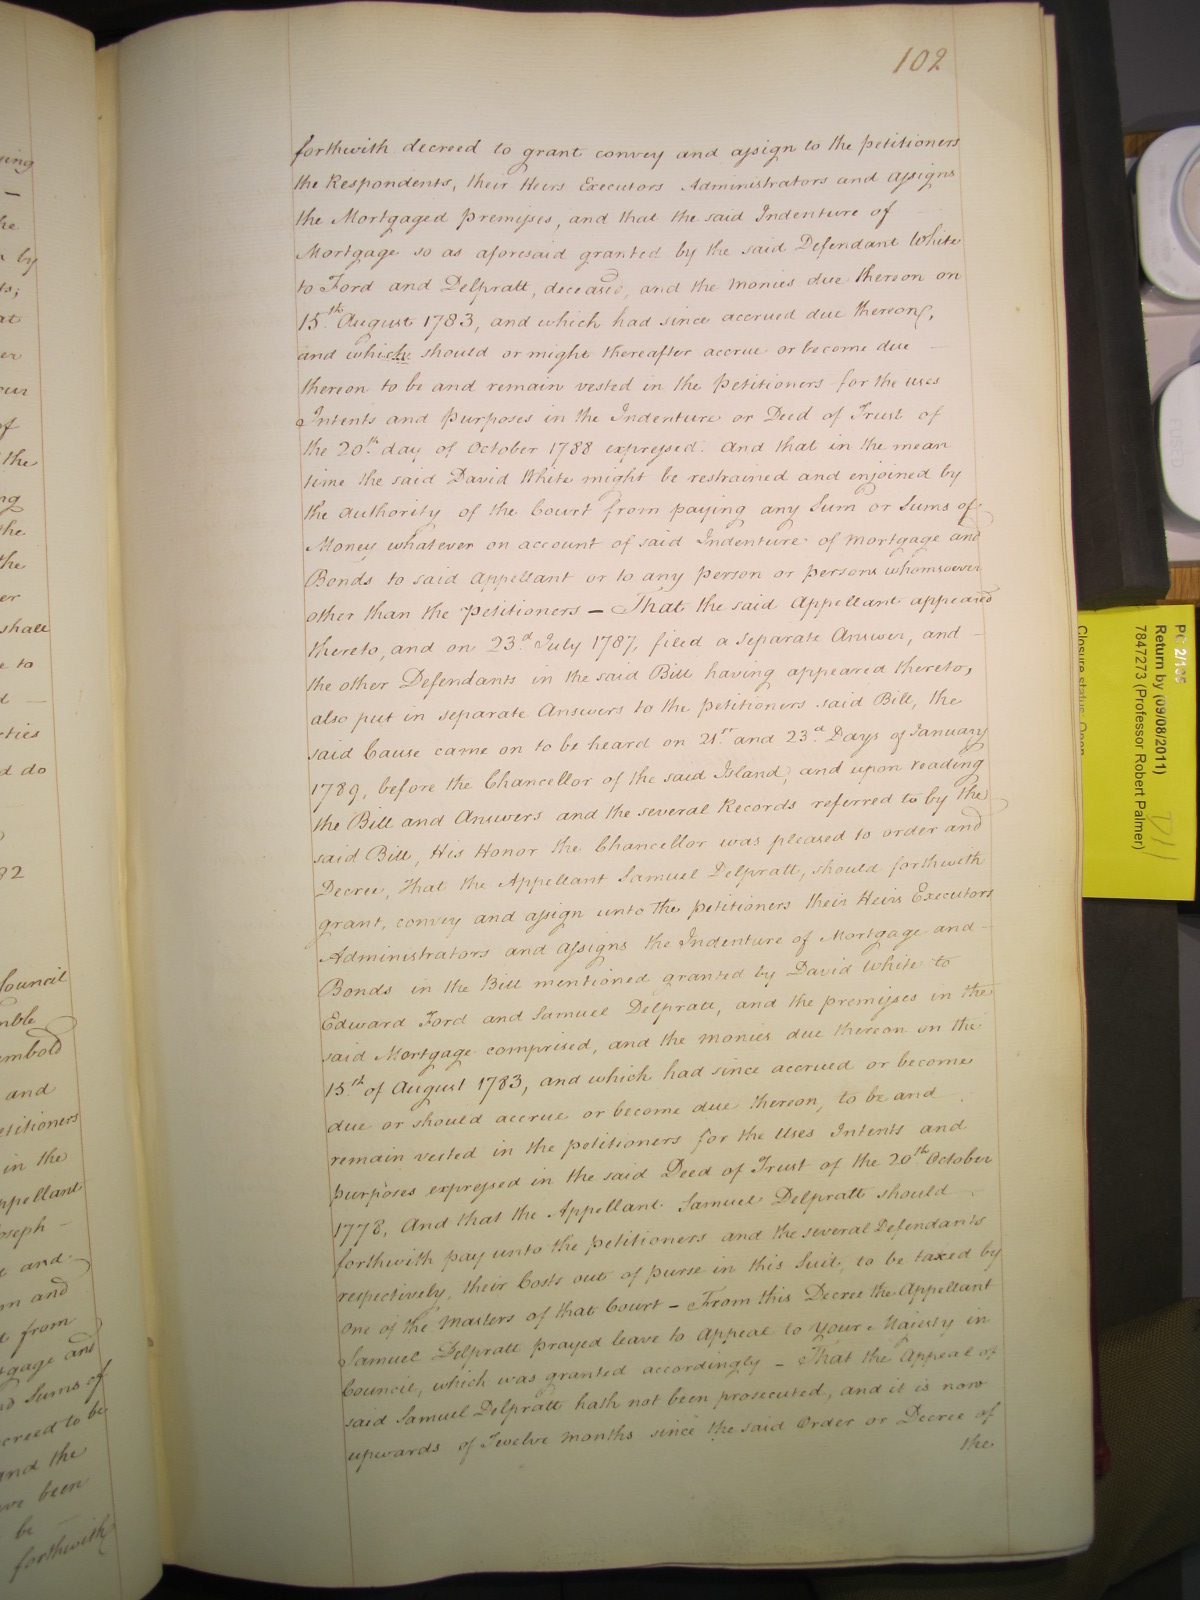 102
forthwith decreed to grant convey and assign to the petitioners
the Respondents, their Heirs Executors Administrators and assigns
the Mortgaged premises, and that the said Indenture of
Mortgage so as aforesaid granted by the said Defendant White
to Ford and Delpratt, deceased, and the monies due thereon on
15th August 1783, and which had since accrued due thereon,
and which should or might thereafter accrue or become due —
thereon to be and remain vested in the petitioners for the uses
Intents and purposes in the Indenture or Deed of Trust of
the 20th day of October 1788 expressed. And that in the mean
time the said David White might be restrained and enjoined by
the authority of the Court from paying any Sum or Sums of
Money whatever on account of said Indenture of mortgage and
Bonds to said Appellant or to any person or persons whomsoever
other than the Petitioners — That the said Appellant appeared
thereto, and on 23d July 1787, filed a separate Answer, and —
the other Defendants in the said Bill having appeared thereto,
also put in separate Answers to the petitioners said Bill, the
said Cause came on to be heard on 21st and 23d Days of January
1789, before the Chancellor of the said Island, and upon reading
the Bill and Answers and the several Records referred to by the
said Bill, His Honor the Chancellor was pleased to order and
Decree, That the Appellant Samuel Delpratt, should forthwith
grant, convey and assign unto the petitioners their Heirs Executors
Administrators and Assigns the Indenture of Mortgage and —
Bonds in the Bill mentioned granted by David White to
Edward Ford and Samuel Delpratt, and the premises in the
said Mortgage comprised, and the monies due thereon on the
15th of August 1783, and which had since accrued or become
due or should accrue or become due thereon, to be and
remain vested in the petitioners for the Uses Intents and
purposes expressed in the said Deed of Trust of the 20th October
1778, And that the Appellant Samuel Delpratt should
forthwith pay unto the petitioners and the several Defendants
respectively, their Costs out of purse in this Suit, to be taxed by
one of the Masters of that Court — From this Decree the Appellant
Samuel Delpratt prayed leave to Appeal to Your Majesty in
Council, which was granted accordingly — That the Appeal of
said Samuel Delpratt hath not been prosecuted, and it is now
upwards of Twelve months since the said Order or Decree of
the
ying
—
he
by
at
er
our
of
the
ng
the
the
er
shall
e to
d —
rties
d do
82
Council
mble
and
etitioners
in the
ppellant
oseph —
and
m and
from
tgage and
d Sums of
creed to be
and the
ve been
be —
forthwith
PC 2/135
Return by (09/08/2011)
7847273 (Professor Robert Palmer)
Closure status: Open